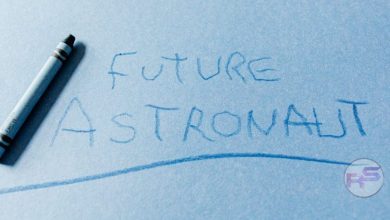 FUTURE
ASTRONAUT